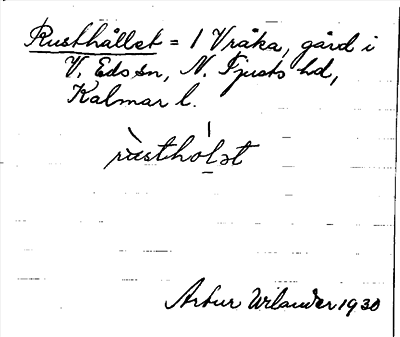 Rusthållet = 1 Vråka, gård i
V. Eds sn, N. Tjusts hd,
Kalmar l.
rùsthól̲ət
Artur Wilander 1930